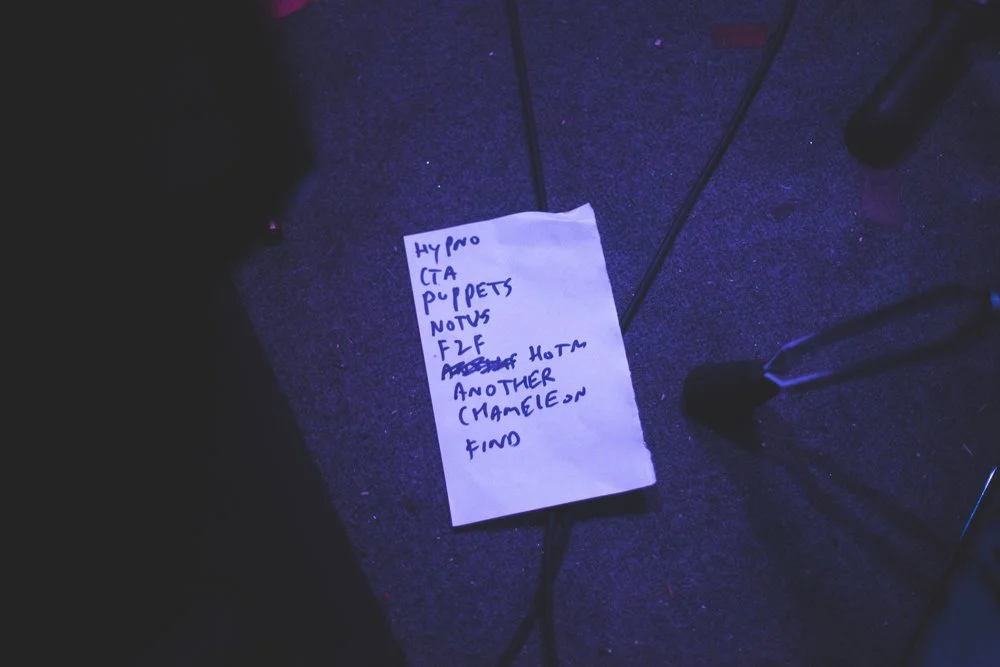 HYPNO
CTA
PUPPETS
NOTUS
F2F
HOTM
ANOTHER
CHAMELEON
FIND